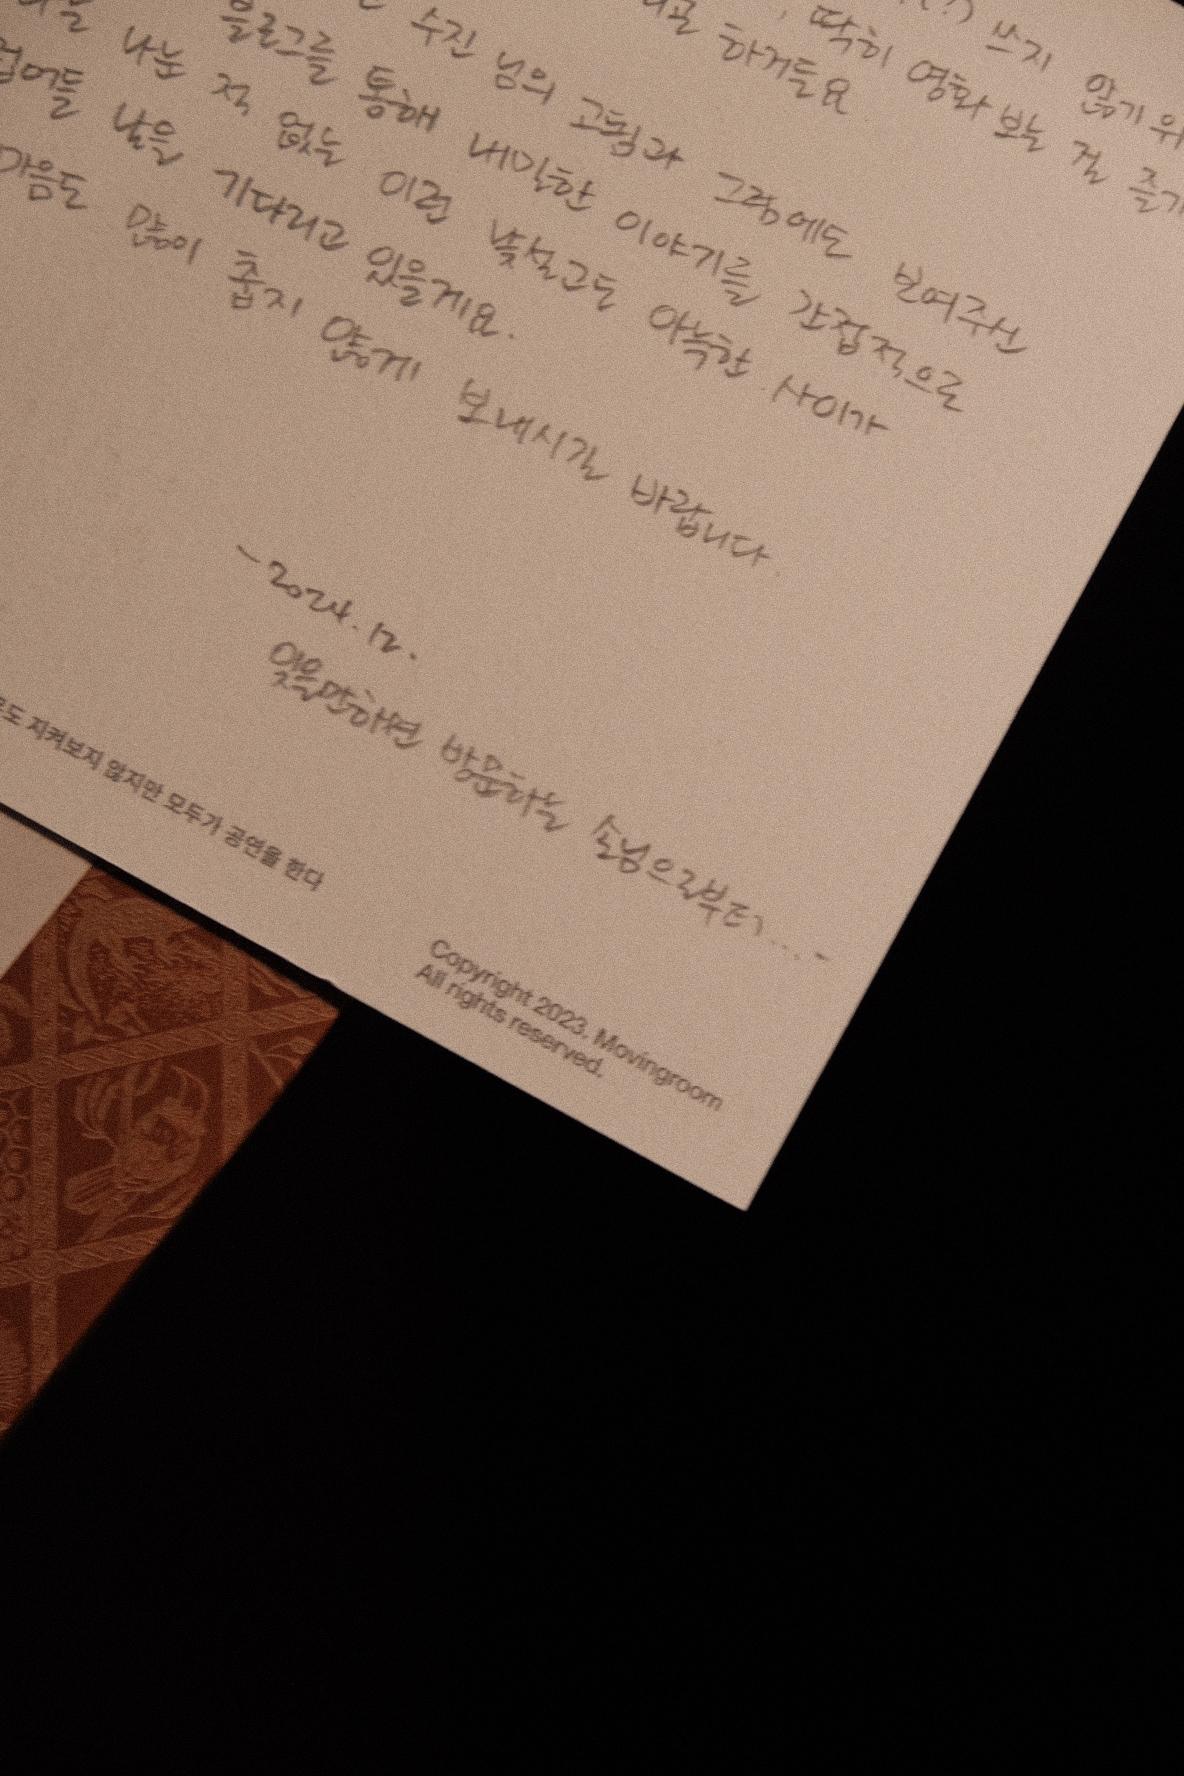 쓰지 않기 위
딱히 영화 보는 걸 즐기
하거든요
수진 님의 고됨과 그럼에도 보여주신
블로그를 통해 내밀한 이야기를 간접적으로
나눈 적 없는 이런 낯설고도 아늑한 사이가
날을 기다리고 있을게요.
마음도 많이 춥지 않게 보내시길 바랍니다.
-2024.12.
잊을만하면 방문하는 손님으로부터...-
도 지켜보지 않지만 모두가 공연을 한다
Copyright 2023. Movingroom
All rights reserved.